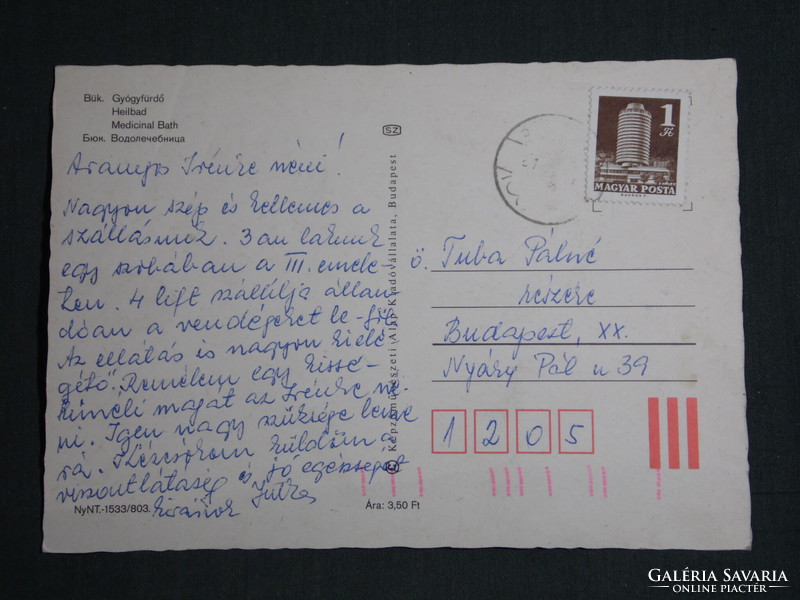 Bük. Gyógyfürdő
Heilbad
Medicinal Bath
Бюк. Водолечебница
Aranyos Irénke néni!
Nagyon szép és kellemes a
szállásunk. 3 an lakunk
egy szobában a III. emele
ten. 4 lift szállítja állan
dóan a vendégeket le-föl.
Az ellátás is nagyon kielé
gítő. Remélem egy kissé
kíméli magát az Irénke né
ni. Igen nagy szüksége lenne
rá. Kézcsókom küldöm a
viszontlátásig és jó egészséget
kívánok Jutka
NyNT.-1533/803.
Ára: 3,50 Ft
SZ
© Képzőművészeti Alap Kiadóvállalata, Budapest
1 Ft
MAGYAR POSTA
ö. Tuba Pálné
részére
Budapest, XX.
Nyáry Pál u 39
1205
GALÉRIA SAVARIA
ONLINE PIACTÉR